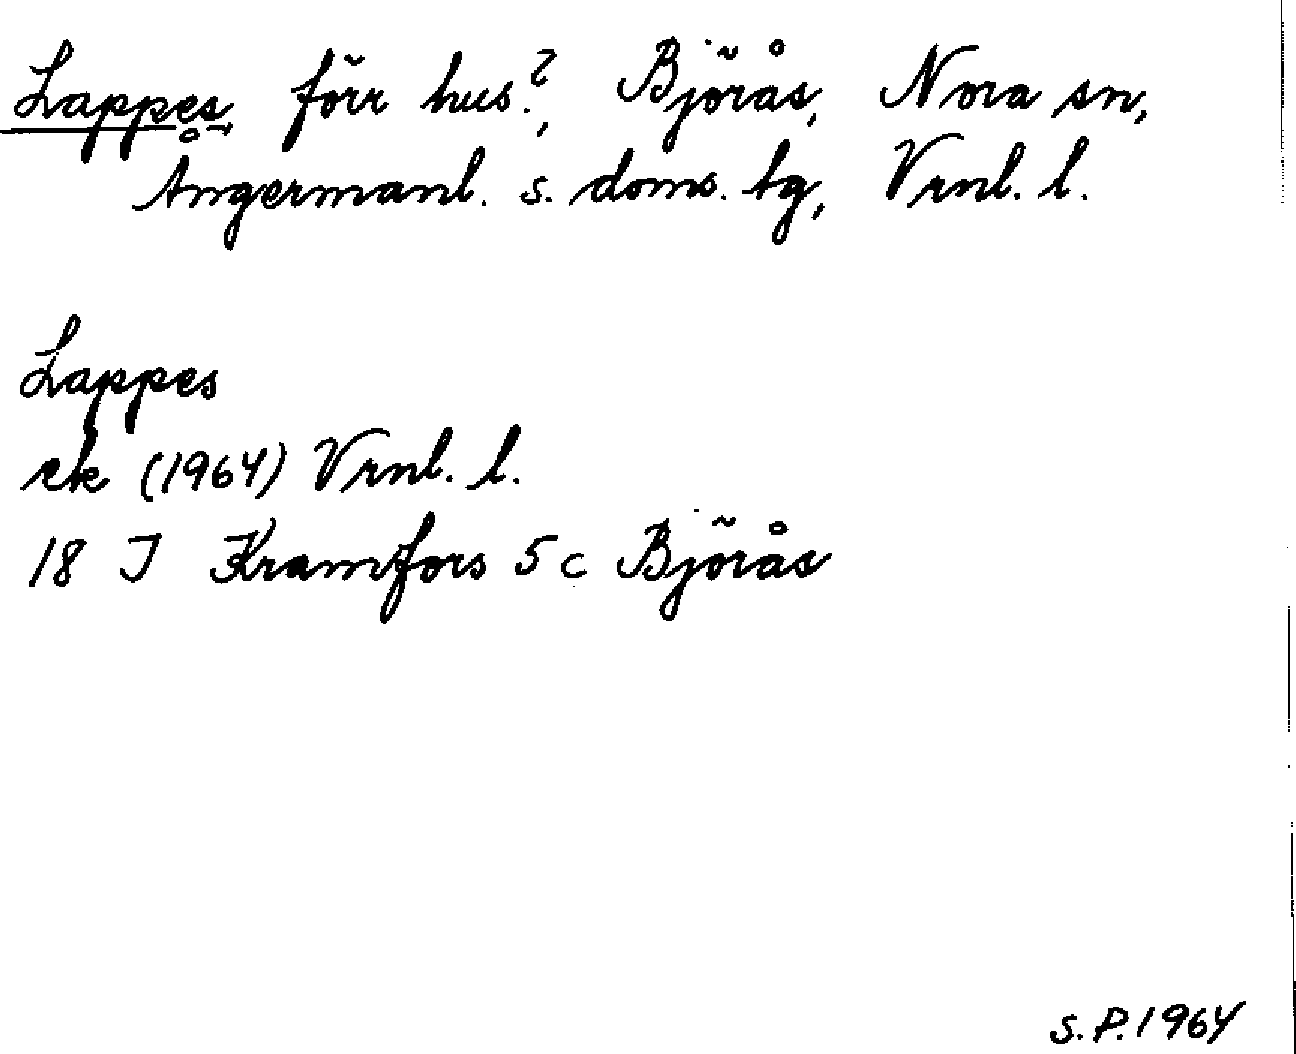 Lappes, förr hus?, Björås, Nora sn,
Ångermanl. s. doms. tg, Vrnl. l.
Lappes
ek (1964) Vrnl. l.
18 I Kramfors 5 c Björås
S.P. 1964